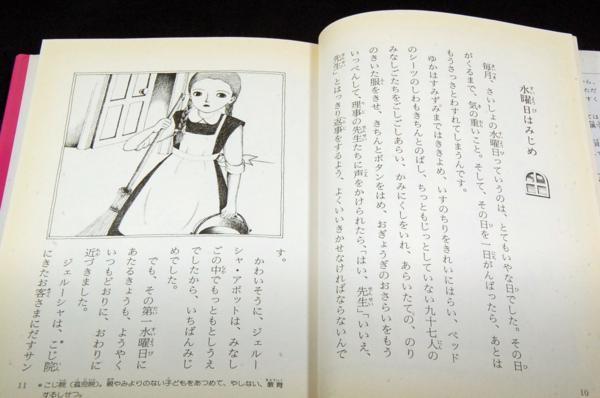 水曜日はみじめ
毎月、さいしょの水曜日っていうのは、とてもいやな日でした。その日
がくるまで、気の重いこと。そして、その日を一日がんばったら、あとは
もうさっさとわすれてしまうんです。
ゆかはすみずみまではききよめ、いすのちりをきれいにはらい、ベッド
のシーツのしわもきちんとのばし、ちっともじっとしていない九十七人の
みなしごたちをごしごしあらい、かみにくしをいれ、あらいたての、のり
のきいた服をきせ、きちんとボタンをはめ、おぎょうぎのおさらいをもう
いっぺんして、理事の先生たちに声をかけられたら、「はい、先生」「いいえ、
先生」とはっきり返事をするよう、よくいいきかせなければならないんで
10
す。
かわいそうに、ジェルー
シャ・アボットは、みなし
ごの中でもっともとしうえ
でしたから、いちばんみじ
めでした。
でも、その第一水曜日に
あたるきょうも、ようやく
いつもどおりに、おわりに
近づきました。
ジェルーシャは、こじ院
にきたお客さまにだすサン
*こじ院(孤児院)。親やみよりのない子どもをあつめて、やしない、教育
するしせつ。
11